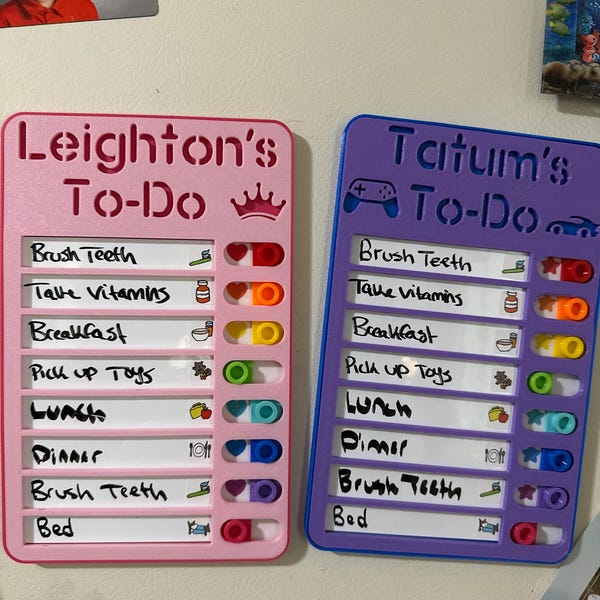 Leighton's
To-Do
Brush Teeth
Take Vitamins
Breakfast
Pick up Toys
Lunch
Dinner
Brush Teeth
Bed
Tatum's
To-Do
Brush Teeth
Take Vitamins
Breakfast
Pick up Toys
Lunch
Dinner
Brush Teeth
Bed